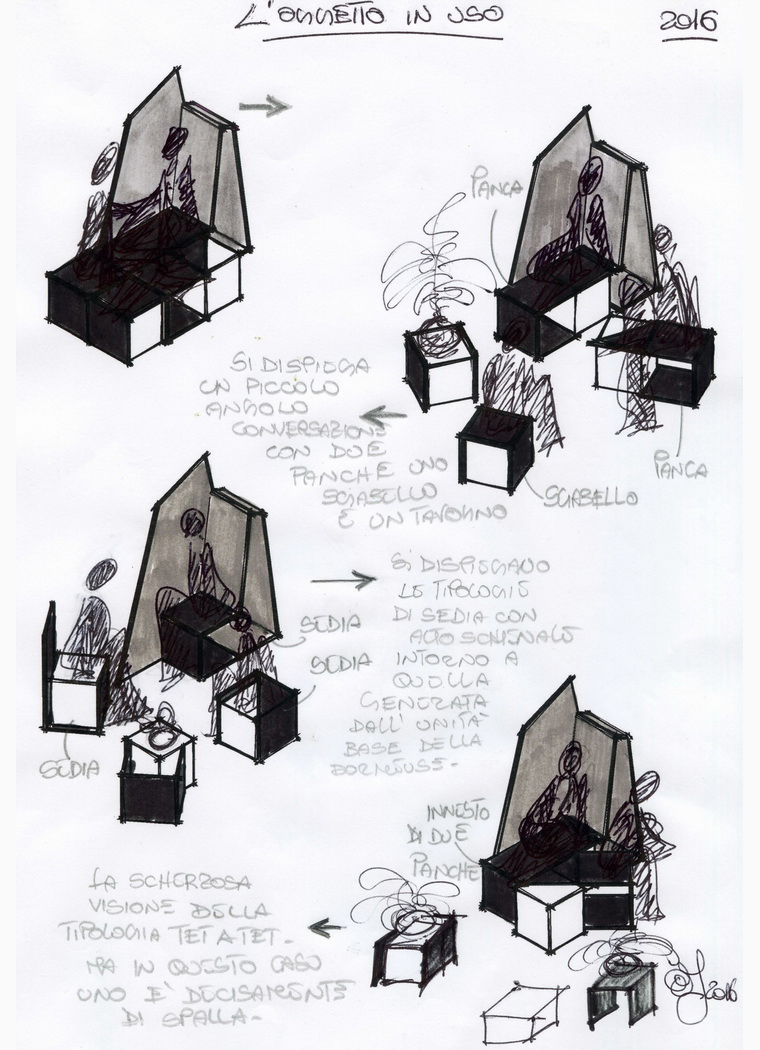 L'OGGETTO IN USO
2016
PANCA
SI DISPIEGA
UN PICCOLO
ANGOLO
CONVERSAZIONE
CON DUE
PANCHE UNO
SGABELLO
E UN TAVOLINO
PANCA
SGABELLO
SI DISPIEGANO
LE TIPOLOGIE
DI SEDIA CON
ALTO SCHIENALE
INTORNO A
QUELLA
GENERATA
DALL'UNITÀ
BASE DELLA
BORNEUSE-
SEDIA
SEDIA
SEDIA
INNESTO
DI DUE
PANCHE
LA SCHERZOSA
VISIONE DELLA
TIPOLOGIA TET A TET-
MA IN QUESTO CASO
UNO E' DECISAMENTE
DI SPALLA-
2016